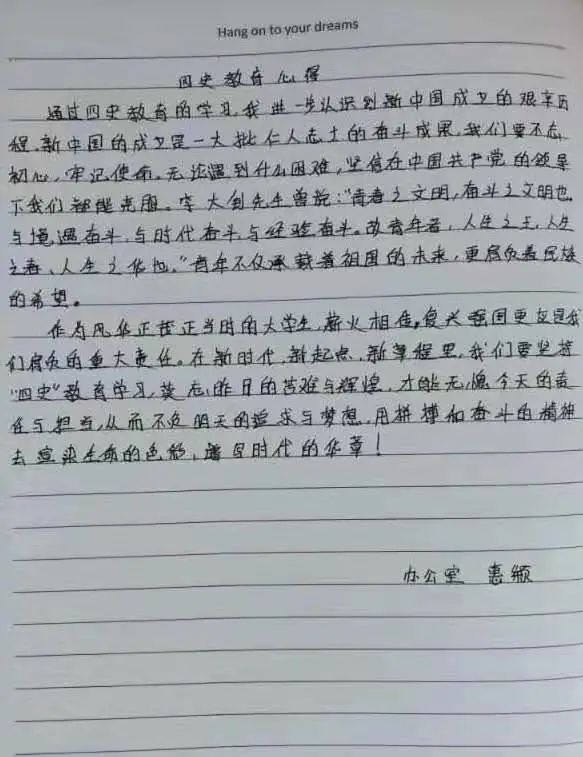 Hang on to your dreams
四史教育心得
通过四史教育的学习,我进一步认识到新中国成立的艰辛历
程,新中国的成立是一大批仁人志士的奋斗成果,我们要不忘
初心,牢记使命。无论遇到什么困难,坚信在中国共产党的领导
下我们都能克服。李大钊先生曾说:“青春之文明,奋斗之文明也,
与境遇奋斗,与时代奋斗,与经验奋斗。故青年者,人生之王,人生
之春,人生之华也。”青年不仅承载着祖国的未来,更肩负着民族
的希望。
作为风华正茂正当时的大学生,薪火相传,复兴强国更应是我
们肩负的重大责任。在新时代,新起点,新征程里,我们要坚持
“四史”教育学习,莫忘昨日的苦难与辉煌,才能无愧今天的责
任与担当,从而不负明天的追求与梦想,用拼搏和奋斗的精神
去渲染生命的色彩,谱写时代的华章!
办公室 惠颖